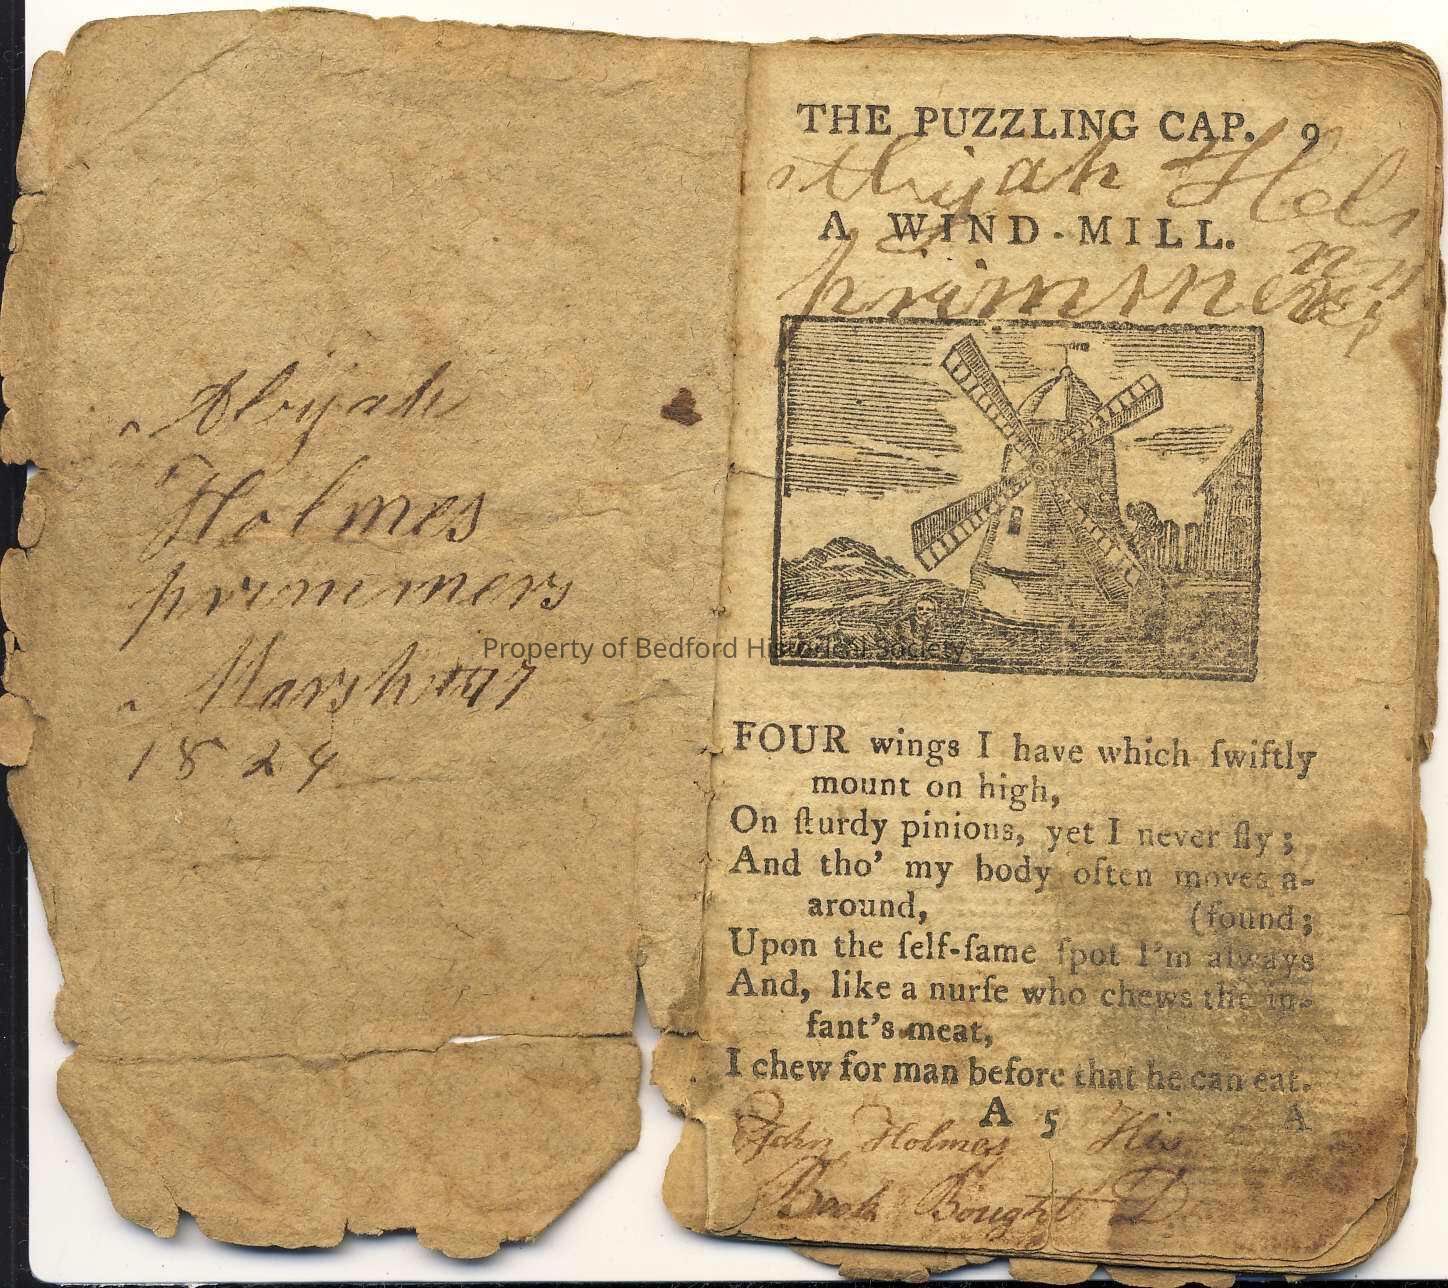 Abijah
Holmes
primmers
Marsh
1824
Property of Bedford Historical Society
THE PUZZLING CAP. 9
Abijah Hol
A WIND-MILL.
primmers
FOUR wings I have which ſwiftly
mount on high,
On ſturdy pinions, yet I never fly;
And tho' my body often moves a-
around, (found;
Upon the ſelf-ſame ſpot I'm always
And, like a nurſe who chews the in-
fant's meat,
I chew for man before that he can eat.
A 5 A
John Holmes His
Book Bought D